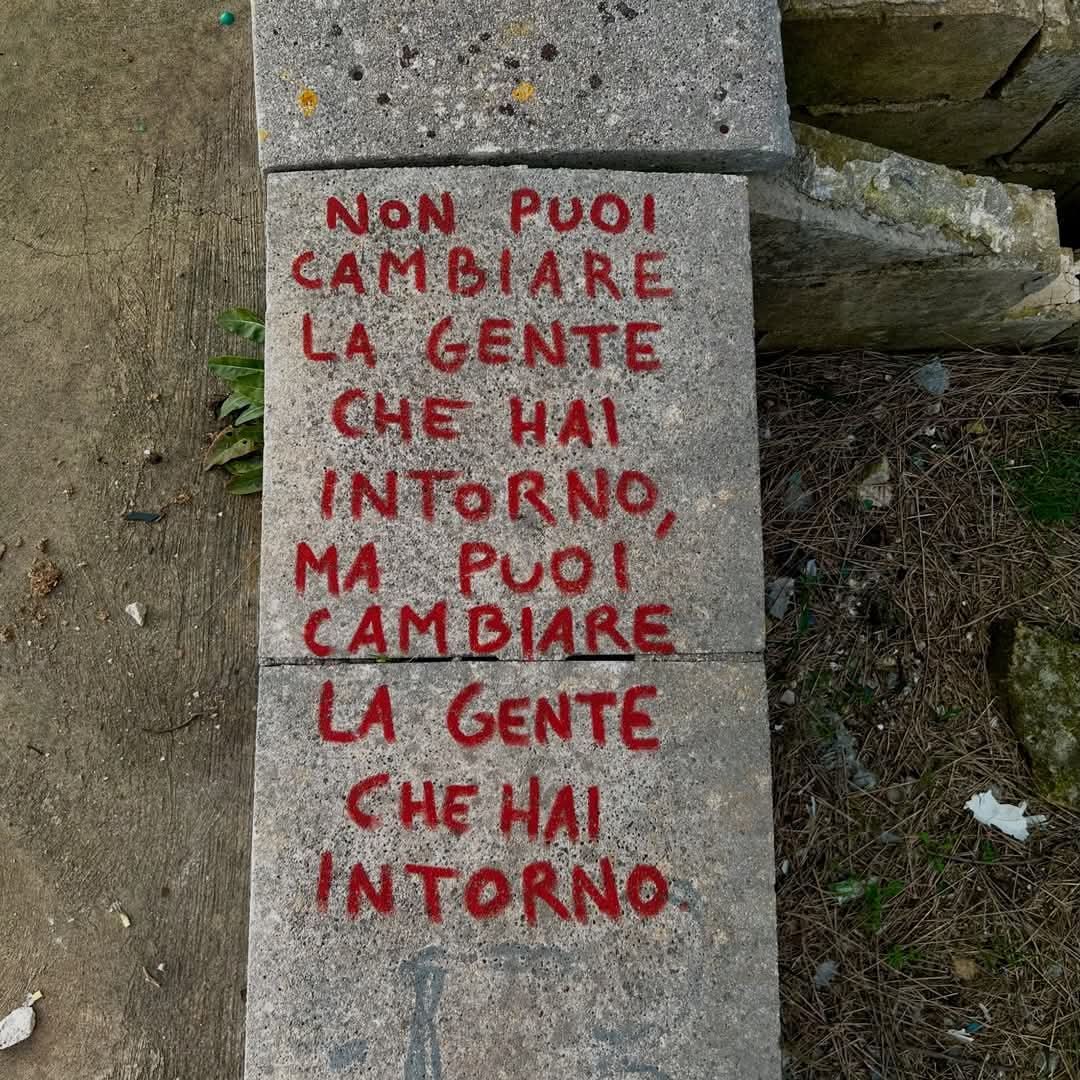 NON PUOI
CAMBIARE
LA GENTE
CHE HAI
INTORNO,
MA PUOI
CAMBIARE
LA GENTE
CHE HAI
INTORNO.